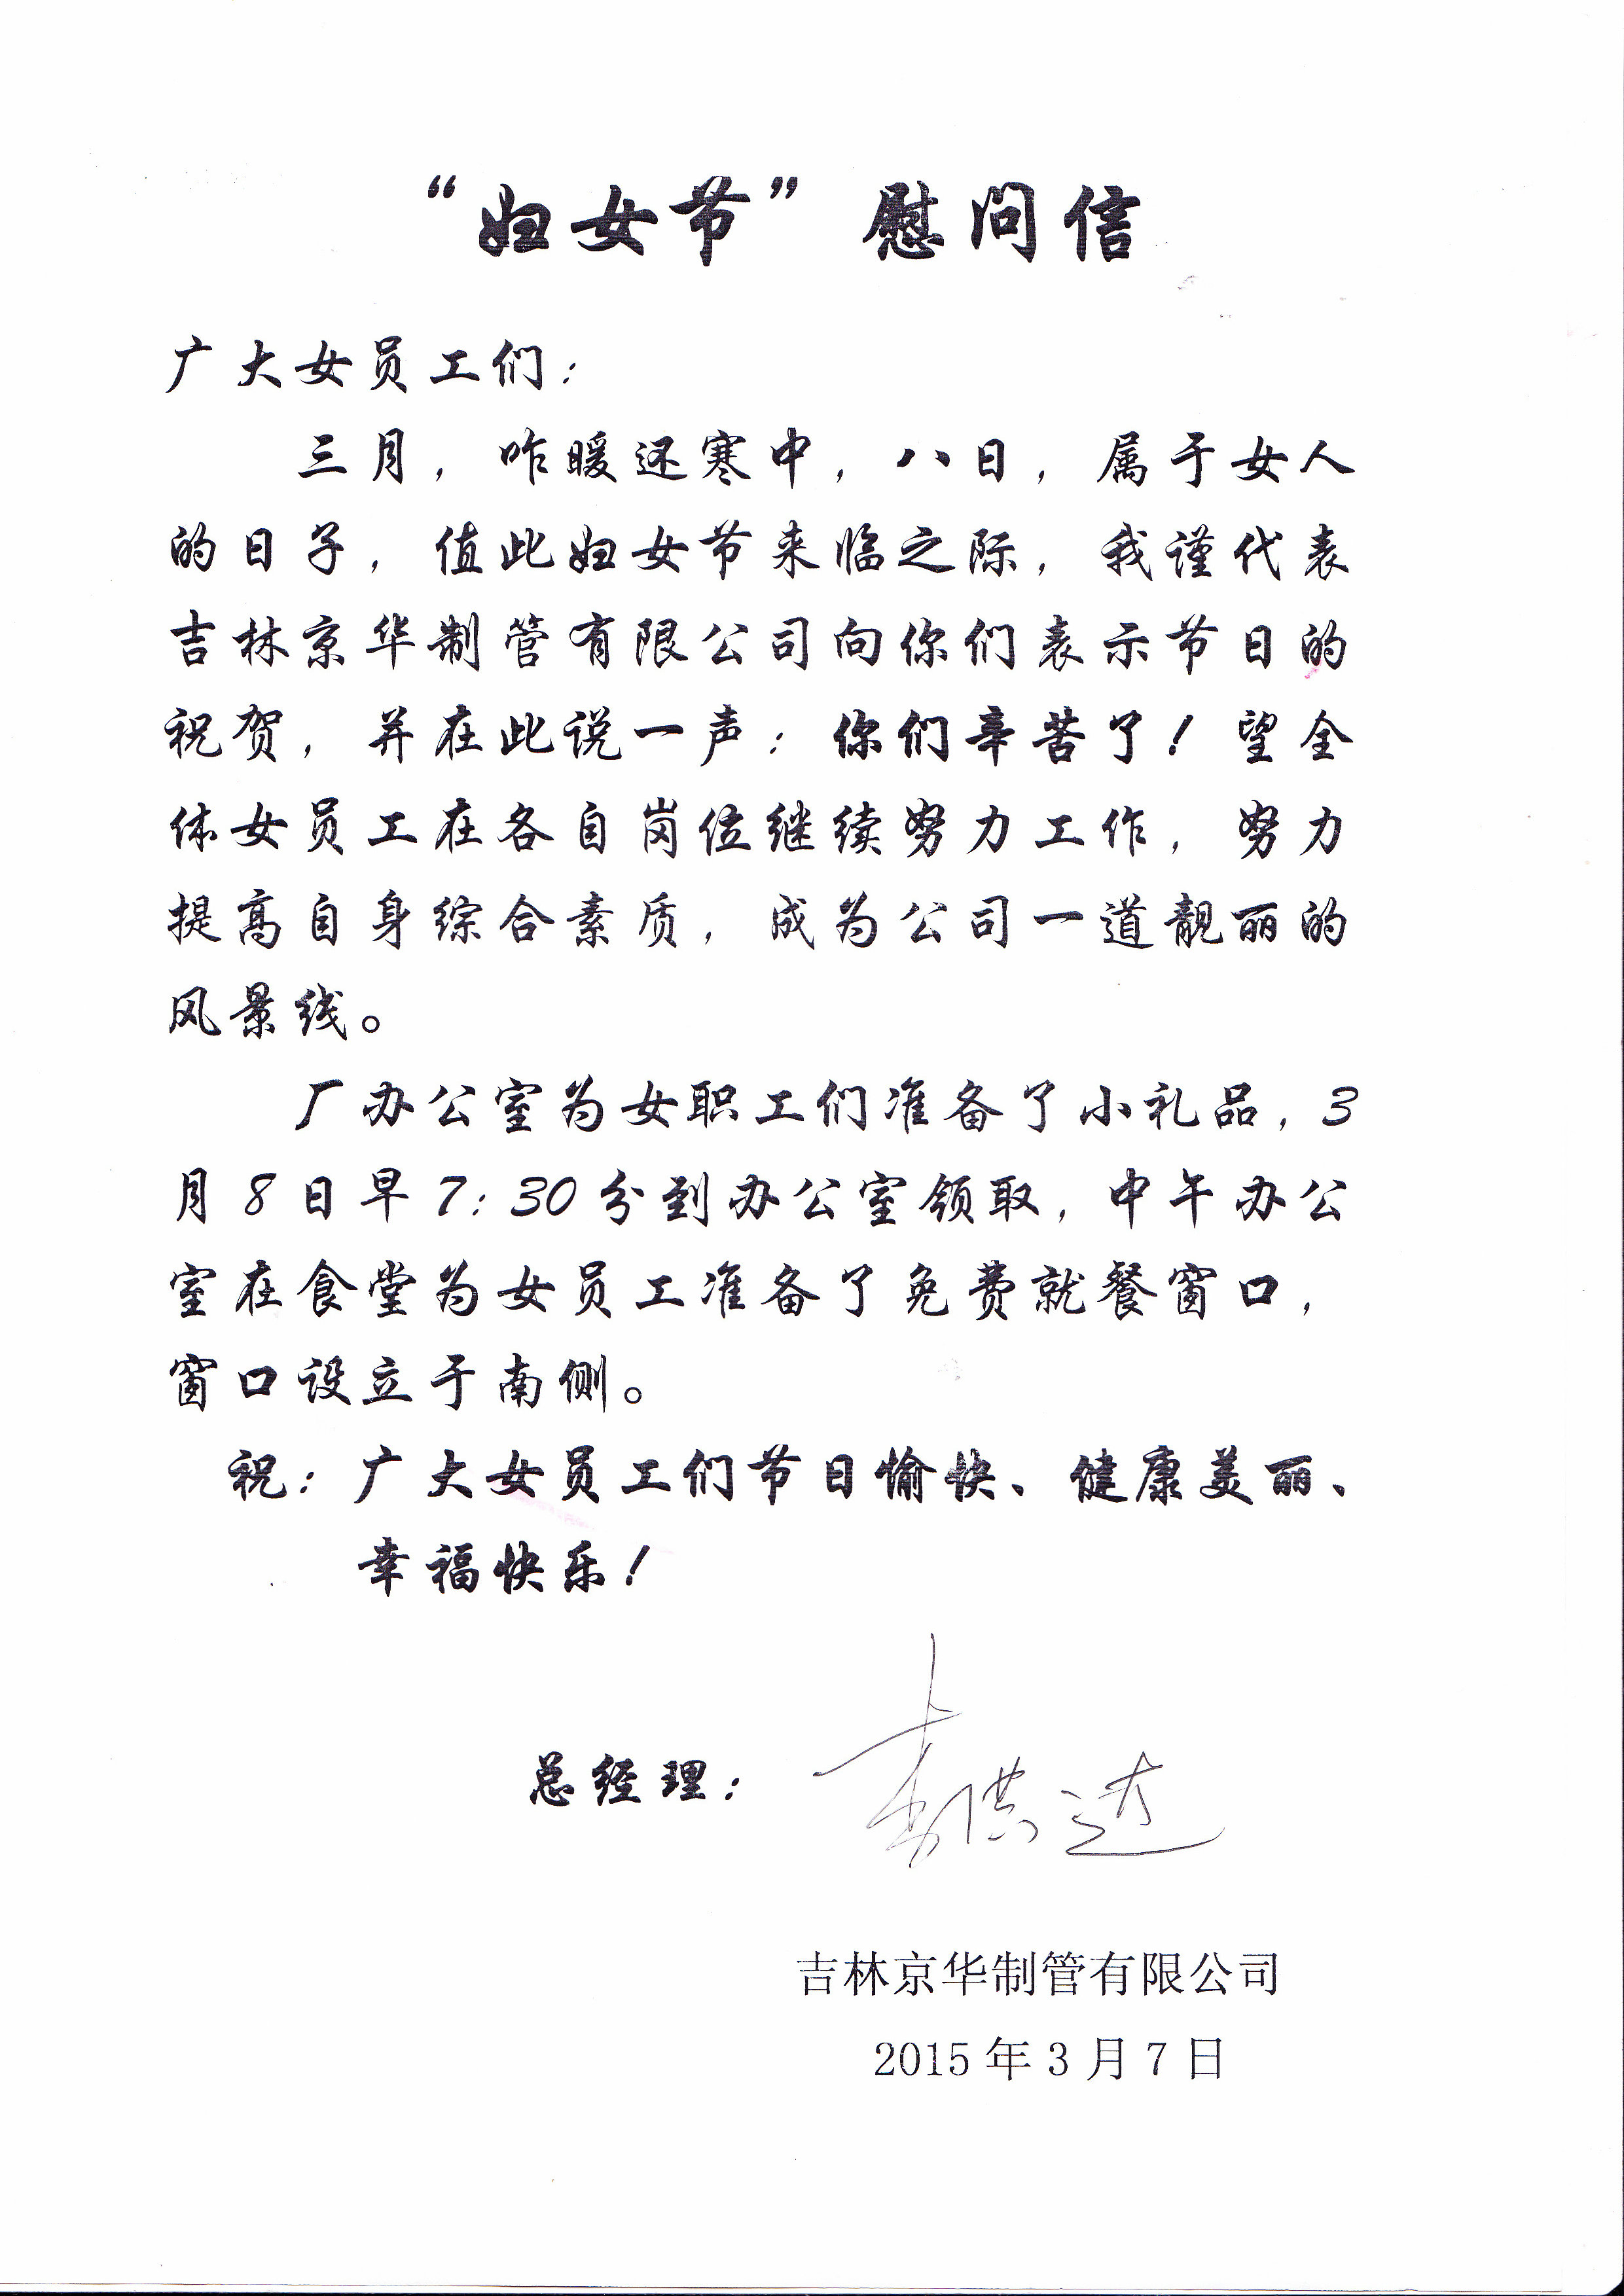 “妇女节”慰问信
广大女员工们：
三月，咋暖还寒中，八日，属于女人
的日子，值此妇女节来临之际，我谨代表
吉林京华制管有限公司向你们表示节日的
祝贺，并在此说一声：你们辛苦了！望全
体女员工在各自岗位继续努力工作，努力
提高自身综合素质，成为公司一道靓丽的
风景线。
厂办公室为女职工们准备了小礼品，3
月8日早7:30分到办公室领取，中午办公
室在食堂为女员工准备了免费就餐窗口，
窗口设立于南侧。
祝：广大女员工们节日愉快、健康美丽、
幸福快乐！
总经理：
吉林京华制管有限公司
2015年3月7日